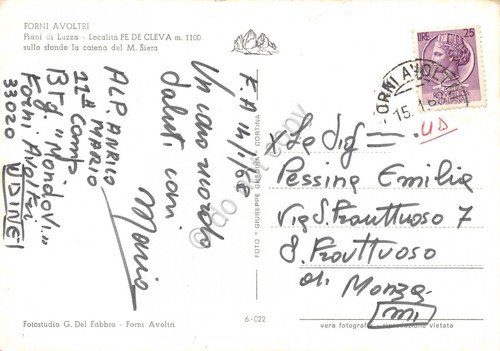 FORNI AVOLTRI
Piani di Luzza - Località PE DE CLEVA m. 1100
sullo sfondo la catena del M. Siera
F. A 14/1/68
Un caro ricordo
Saluti cari
Mario
ALP. ANRIO
MARIO
22ª Comp
Btg. "Mondovì"
Forni Avoltri
33020 UDINE
LIRE 25
FORNI AVOLT
15.1.68
UD
Pessina Emilia
Via S. Fruttuoso 7
S. Fruttuoso
di Monza
MI
FOTO GIUSEPPE GHEDINA - CORTINA
Fotostudio G. Del Fabbro - Forni Avoltri
6-022
vera fotografia - riproduzione vietata